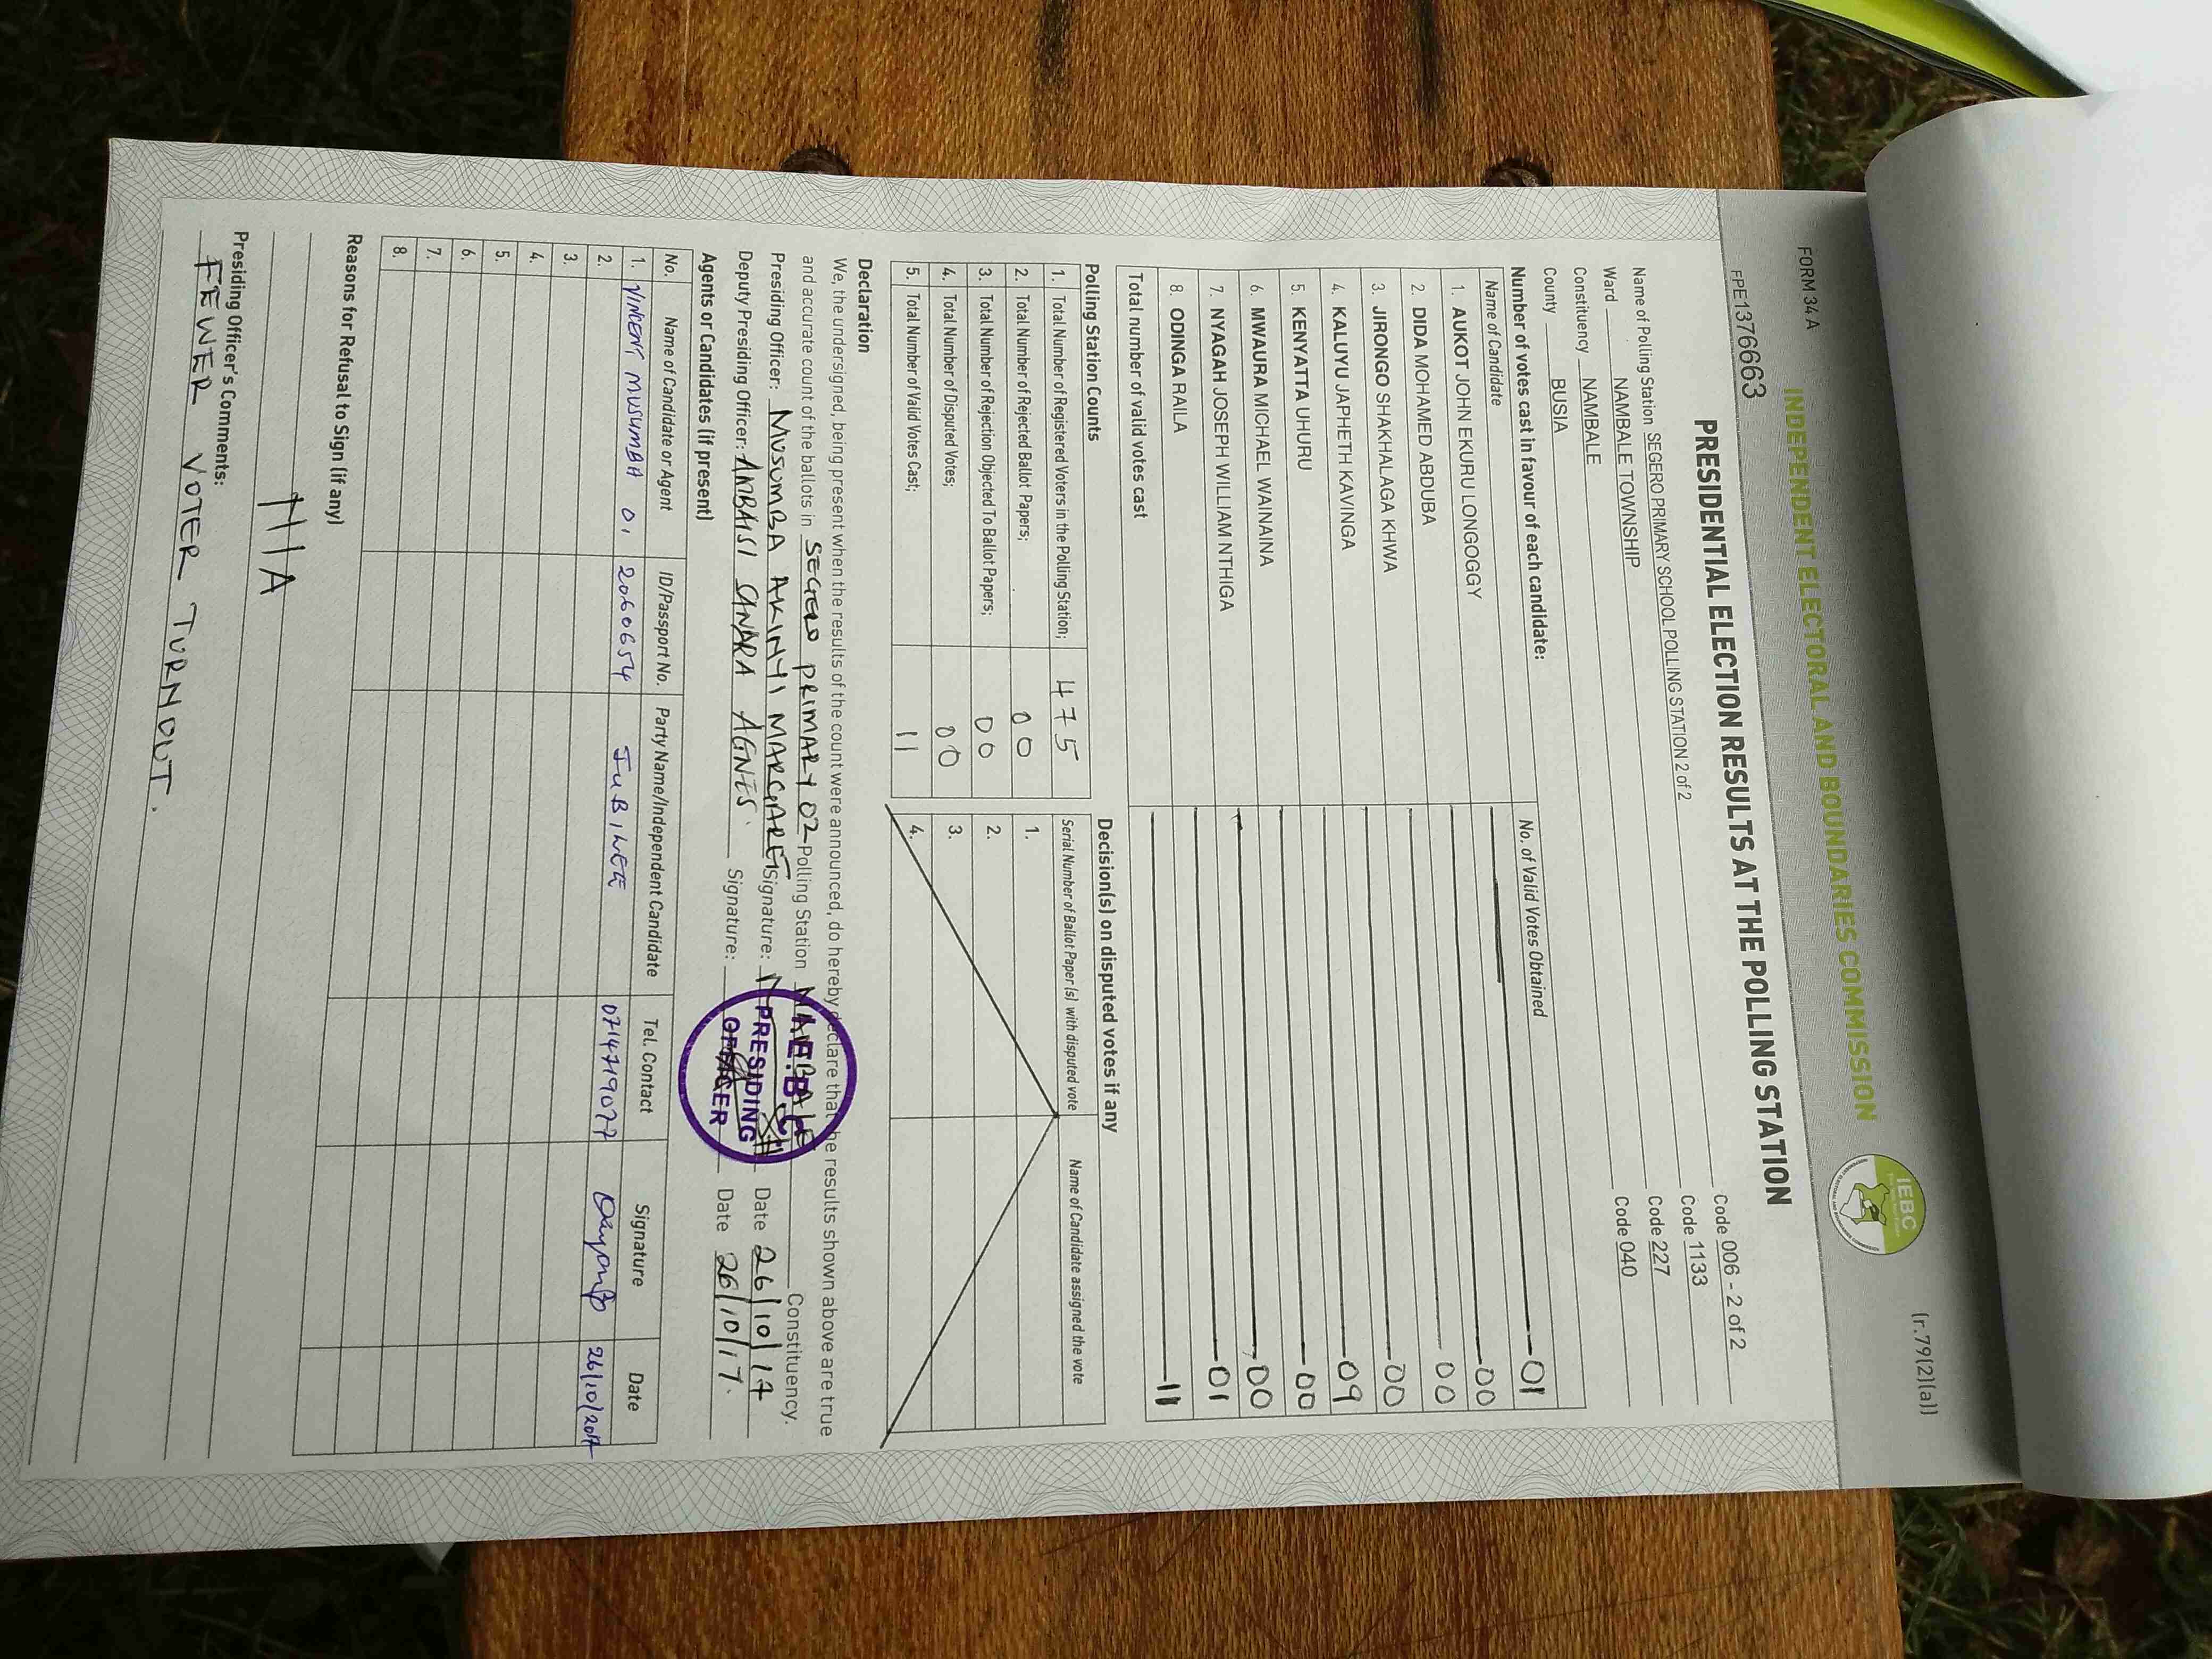 FORM 34 A
(r.79(2)(a))
INDEPENDENT ELECTORAL AND BOUNDARIES COMMISSION
IEBC
FPE1376663
PRESIDENTIAL ELECTION RESULTS AT THE POLLING STATION
Name of Polling Station SEGERO PRIMARY SCHOOL POLLING STATION 2 of 2 Code 006 - 2 of 2
Ward NAMBALE TOWNSHIP Code 1133
Constituency NAMBALE Code 227
County BUSIA Code 040
Number of votes cast in favour of each candidate:
Name of Candidate No. of Valid Votes Obtained
1. AUKOT JOHN EKURU LONGOGGY 01
2. DIDA MOHAMED ABDUBA 00
3. JIRONGO SHAKHALAGA KHWA 00
4. KALUYU JAPHETH KAVINGA 00
5. KENYATTA UHURU 09
6. MWAURA MICHAEL WAINAINA 00
7. NYAGAH JOSEPH WILLIAM NTHIGA 00
8. ODINGA RAILA 01
Total number of valid votes cast 11
Polling Station Counts
1. Total Number of Registered Voters in the Polling Station; 475
2. Total Number of Rejected Ballot Papers; 00
3. Total Number of Rejection Objected To Ballot Papers; 00
4. Total Number of Disputed Votes; 00
5. Total Number of Valid Votes Cast; 11
Decision(s) on disputed votes if any
Serial Number of Ballot Paper (s) with disputed vote Name of Candidate assigned the vote
1.
2.
3.
4.
Declaration
We, the undersigned, being present when the results of the count were announced, do hereby declare that the results shown above are true
and accurate count of the ballots in SEGERO PRIMARY 02 Polling Station NAMBALE Constituency.
Presiding Officer: MUSUMBA AKINYI MARGARET Signature: Date 26/10/17
Deputy Presiding Officer: AMBAISI SANDRA AGNES. Signature: Date 26/10/17.
I.E.B.C
PRESIDING
OFFICER
Agents or Candidates (if present)
No. Name of Candidate or Agent ID/Passport No. Party Name/Independent Candidate Tel. Contact Signature Date
1. VINCENT MUSUMBA O. 20606654 JUBILEE 0714719077 26/10/2017
2.
3.
4.
5.
6.
7.
8.
Reasons for Refusal to Sign (if any)
N/A
Presiding Officer's Comments:
FEWER VOTER TURNOUT.